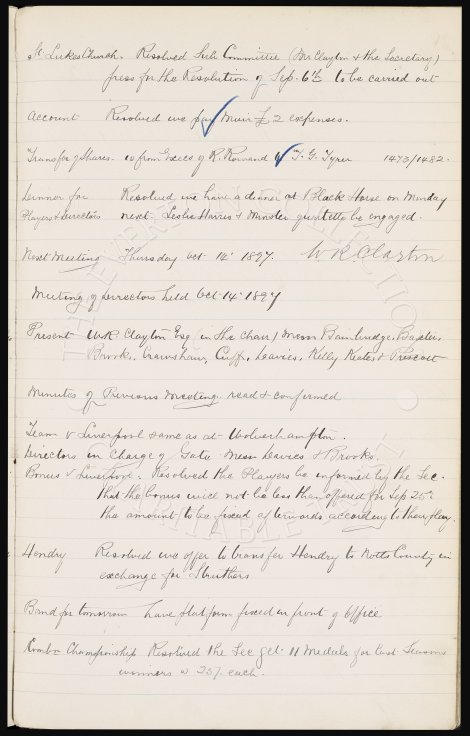 St Lukes Church. Resolved Sub Committee (Mr Clayton & the Secretary)
press for the Resolution of Sep. 6th to be carried out
Account Resolved we pay Muir £2 expenses.
Transfer of Shares. 10 from Execs of R. Rowand to T. G. Tyrer 1473/1482.
Dinner for Resolved we have a dinner at Black Horse on Monday
Players & Directors next. Leslie Harris & Minster quintette be engaged.
Next Meeting Thursday Oct 14th 1897. W R Clayton
Meeting of Directors held Oct 14th 1897
Present W R Clayton Esq (in the Chair) Messrs Bainbridge, Baxter
Brooks, Crawshaw, Cuff, Davies, Kelly Keates & Prescott
Minutes of Previous Meeting. read & confirmed
Team v Liverpool same as at Wolverhampton
Directors in Charge of Gate Messrs Davies & Brooks.
Bonus v Liverpool. Resolved the Players be informed by the Sec.
that the bonus will not be less than offered for Sep 25th
the amount to be fixed afterwards according to their play.
Hendry Resolved we offer to transfer Hendry to Notts County in
exchange for Struthers
Band for tomorrow have platform fixed in front of Office
Combn Championship Resolved the Sec get 11 Medals for last Seasons
winners @ 25/- each.
THE EVERTON COLLECTION
CHARITABLE TRUST